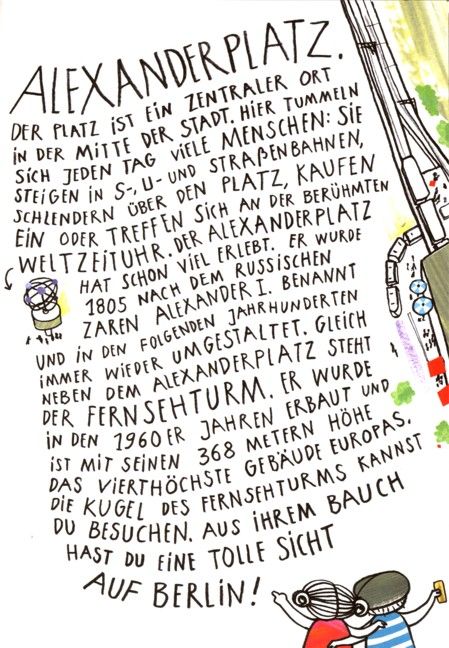 ALEXANDERPLATZ.
DER PLATZ IST EIN ZENTRALER ORT
IN DER MITTE DER STADT. HIER TUMMELN
SICH JEDEN TAG VIELE MENSCHEN: SIE
STEIGEN IN S-, U- UND STRAßENBAHNEN,
SCHLENDERN ÜBER DEN PLATZ, KAUFEN
EIN ODER TREFFEN SICH AN DER BERÜHMTEN
WELTZEITUHR. DER ALEXANDERPLATZ
HAT SCHON VIEL ERLEBT. ER WURDE
1805 NACH DEM RUSSISCHEN
ZAREN ALEXANDER I. BENANNT
UND IN DEN FOLGENDEN JAHRHUNDERTEN
IMMER WIEDER UMGESTALTET. GLEICH
NEBEN DEM ALEXANDERPLATZ STEHT
DER FERNSEHTURM. ER WURDE
IN DEN 1960ER JAHREN ERBAUT UND
IST MIT SEINEN 368 METERN HÖHE
DAS VIERTHÖCHSTE GEBÄUDE EUROPAS.
DIE KUGEL DES FERNSEHTURMS KANNST
DU BESUCHEN. AUS IHREM BAUCH
HAST DU EINE TOLLE SICHT
AUF BERLIN!